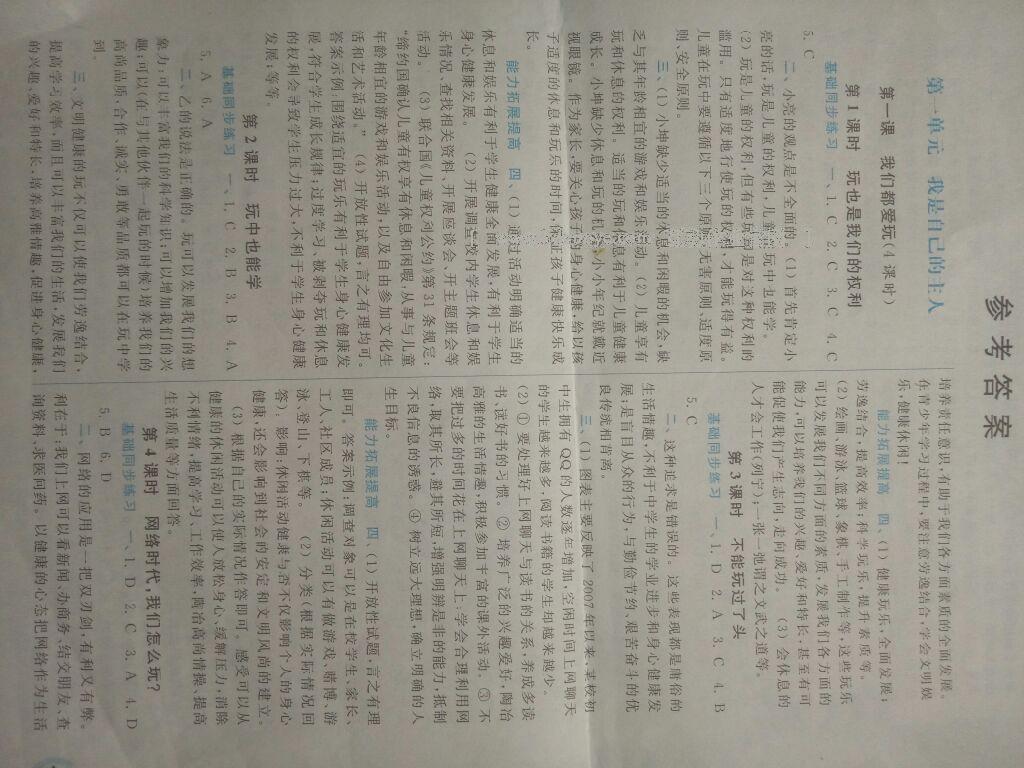 参考答案
第一单元 我是自己的主人
第一课 我们都爱玩(4课时)
第1课时 玩也是我们的权利
基础同步练习 一、1. C 2. C 3. C 4. C
5. C
二、小亮的观点是不全面的。(1)首先肯定小
亮的话,玩是儿童的权利,儿童在玩中也能学。
(2)玩是儿童的权利,但有些玩却是对这种权利的
滥用。只有适度地行使玩的权利,才能玩得有益。
儿童在玩中要遵循以下三个原则:无害原则、适度原
则、安全原则。
三、(1)小坤缺少适当的休息和闲暇的机会,缺
乏与其年龄相宜的游戏和娱乐活动。(2)儿童享有
玩和休息的权利。适当的玩和休息有利于儿童健康
成长。小坤缺少休息和玩的机会,小小年纪就戴近
视眼镜。作为家长,要关心孩子的身心健康,给以孩
子适度的休息和玩乐的时间,保证孩子健康快乐成
长。
能力拓展提高 四、(1)通过活动明确适当的
休息和娱乐有利于学生健康全面发展,有利于学生
身心健康发展。 (2)开展调查校内学生休息和娱
乐情况、查找相关资料、开展座谈会、开主题班会等
活动。 (3)联合国《儿童权利公约》第31条规定:
“缔约国确认儿童有权享有休息和闲暇,从事与儿童
年龄相宜的游戏和娱乐活动,以及自由参加文化生
活和艺术活动。” (4)开放性试题,言之有理均可。
答案示例:围绕适宜的玩乐有利于学生身心健康发
展,符合学生成长规律;过度学习、被剥夺玩和休息
的权利会导致学生压力过大,不利于学生身心健康
发展;等等。
第2课时 玩中也能学
基础同步练习 一、1. C 2. B 3. B 4. A
5. A 6. A
二、乙的说法是正确的。玩可以发展我们的想
象力;可以丰富我们的科学知识;可以增加我们的兴
趣;可以在与其他伙伴一起玩的时候,培养我们的
高尚品质,合作、诚实、勇敢等品质都可以在玩中学
到。
三、文明健康的玩不仅可以使我们劳逸结合,
提高学习效率,而且可以丰富我们的生活,发展我们
的兴趣、爱好和特长,培养高雅情趣,促进身心健康,
培养责任意识,有助于我们各方面素质的全面发展。
在青少年学习过程中,要注意劳逸结合,学会文明娱
乐、健康休闲!
能力拓展提高 四、(1)健康玩乐,全面发展;
劳逸结合,提高效率;科学玩乐,提升素质等。
(2)绘画、游泳、篮球、象棋、手工制作等,这些玩乐
可以发展我们不同方面的素质,发展我们各方面的
能力,可以培养我们的兴趣、爱好和特长,甚至有可
能促使我们产生志向,走向成功。 (3)会休息的
人才会工作(列宁);一张一弛谓之文武之道等。
第3课时 不能玩过了头
基础同步练习 一、1. D 2. A 3. C 4. B
5. C
二、这种追求是错误的。这些表现都是庸俗的
生活情趣,不利于中学生的学业进步和身心健康发
展;是盲目从众的行为,与勤俭节约、艰苦奋斗的优
良传统相背离。
三、(1)图表主要反映了2007年以来,某校初
中生拥有QQ的人数逐年增加,空闲时间上网聊天
的学生越来越多,阅读书籍的学生却越来越少。
(2)①要处理好上网聊天与读书的关系,养成多读
书,读好书的习惯。②培养广泛的兴趣爱好,陶冶
高雅的生活情趣,积极参加丰富的课外活动。③不
要把过多的时间花在上网聊天上;学会合理利用网
络,取其所长,避其所短,增强明辨是非的能力,抵制
不良信息的诱惑。④树立远大理想,确立明确的人
生目标。
能力拓展提高 四、(1)开放性试题,言之有理
即可。答案示例:调查对象可以是在校学生、家长、
工人、社区成员;休闲活动可以有做游戏、赌博、游
泳、登山、下棋等。 (2)分类(根据实际情况回
答)。影响:休闲活动健康与否不仅影响个人的身心
健康,还会影响到社会的安定和文明风尚的建立。
(3)根据自己的实际情况作答即可。感受可以从
健康的休闲活动可以使人放松身心、缓解压力,消除
不利情绪,提高学习、工作效率,陶冶高尚情操、提高
生活质量等方面回答。
第4课时 网络时代,我们怎么玩?
基础同步练习 一、1. D 2. C 3. A 4. D
5. B 6. D
二、网络的应用是一把双刃剑,有利又有弊。
利在于:我们上网可以看新闻、办商务、结交朋友、查
询资料、求医问药。以健康的心态把网络作为生活